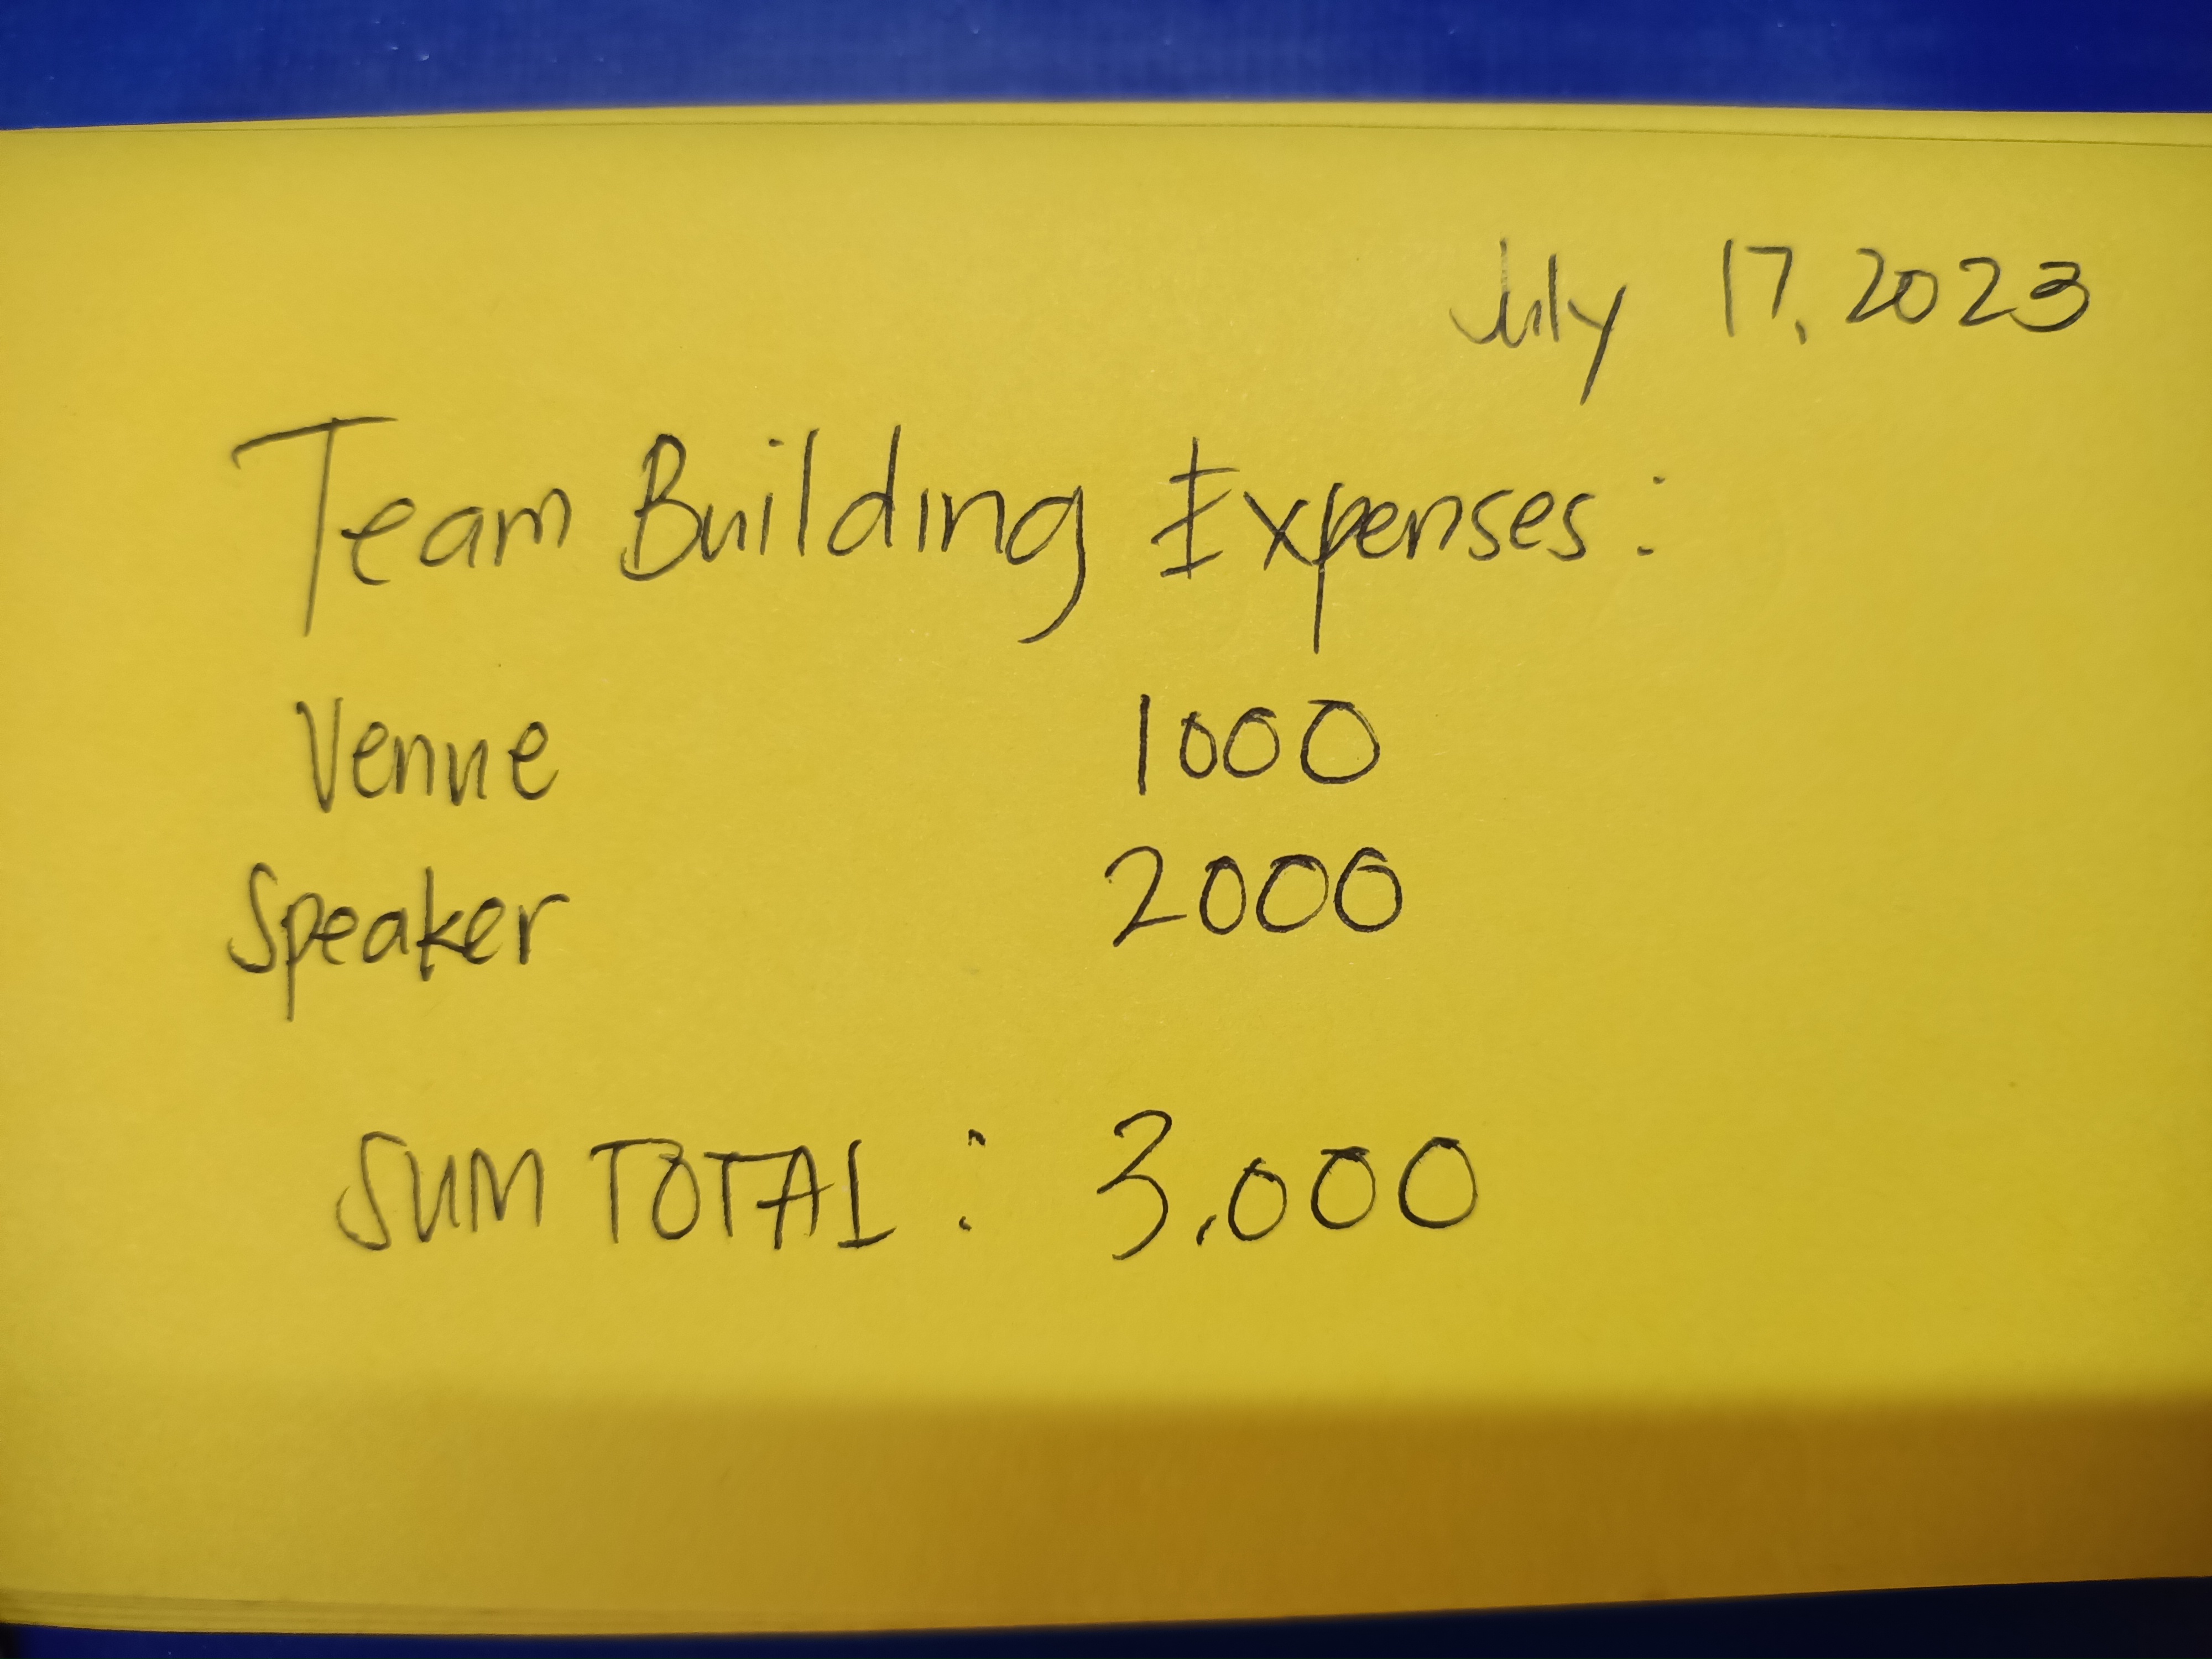 July 17, 2023
Team Building Expenses:
Venue 1000
Speaker 2000
SUM TOTAL: 3,000